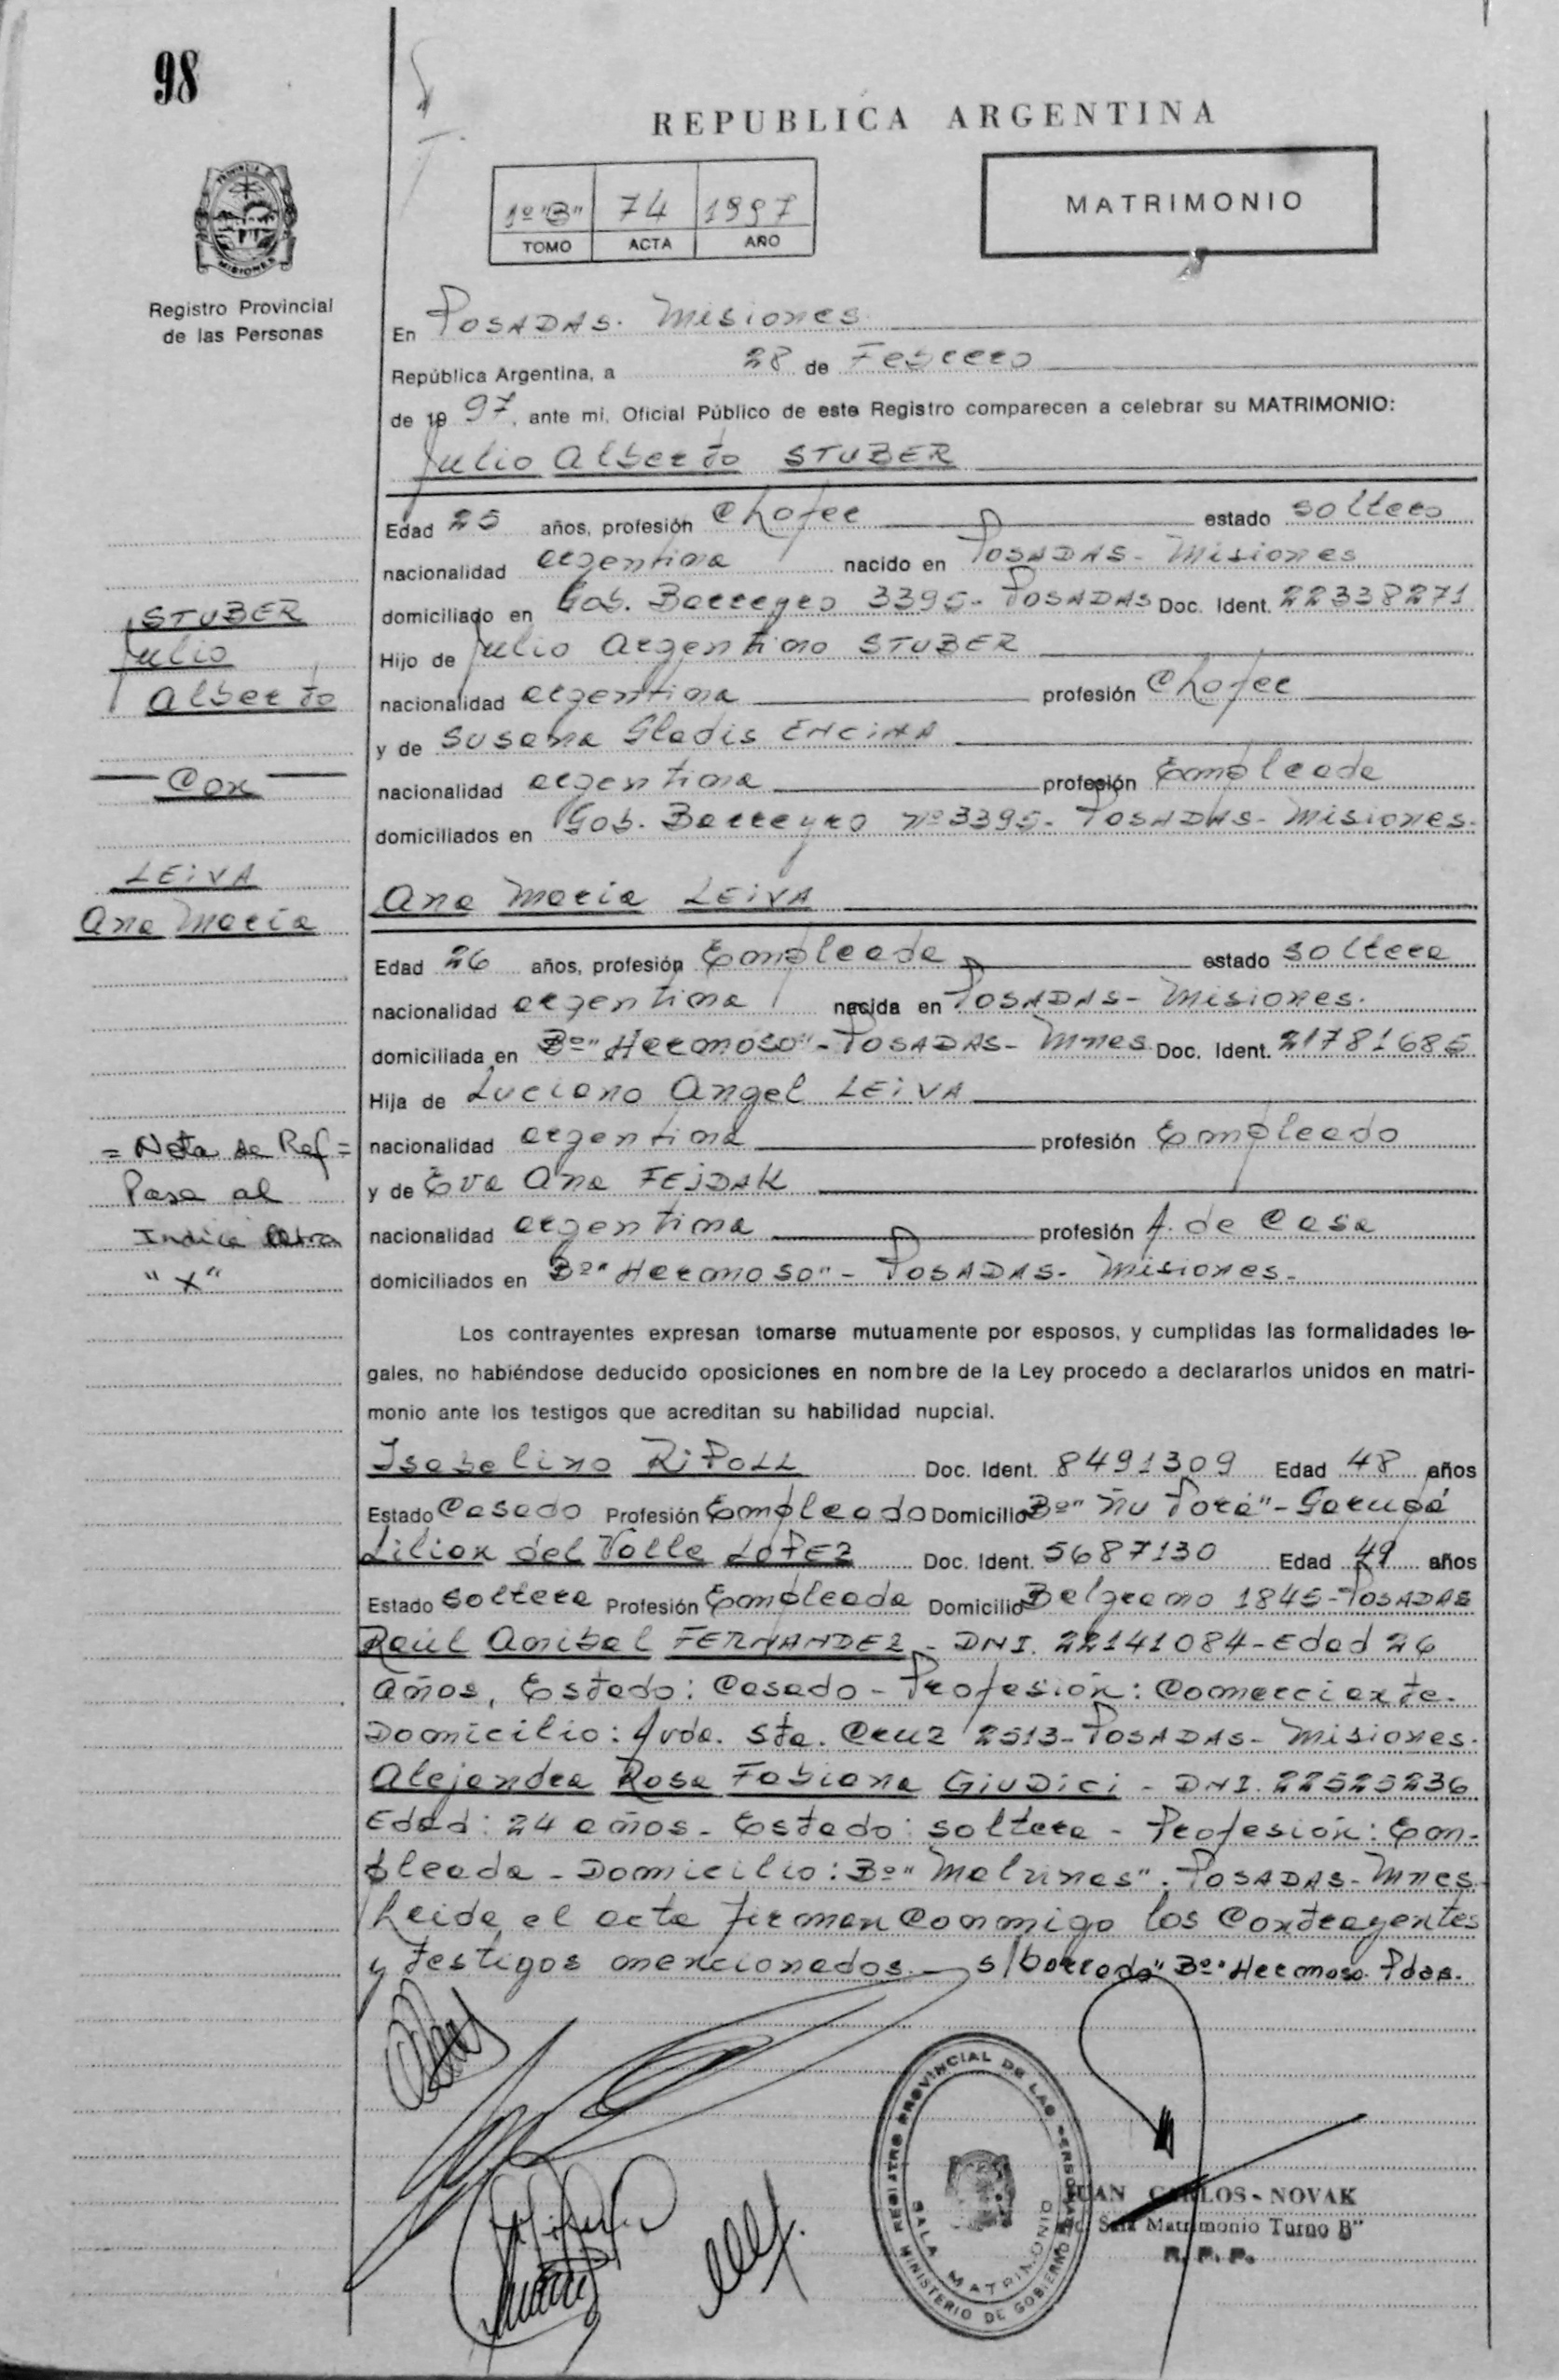 98
REPUBLICA ARGENTINA
1º "B" 74 1997
TOMO ACTA AÑO
MATRIMONIO
PROVINCIA DE
MISIONES
Registro Provincial
de las Personas
En POSADAS. Misiones
República Argentina, a 28 de Febrero
de 19 97, ante mí, Oficial Público de este Registro comparecen a celebrar su MATRIMONIO:
Julio Alberto STUBER
Edad 25 años, profesión Chofer estado soltero
nacionalidad argentina nacido en POSADAS - Misiones
domiciliado en Gob. Barreyro 3395 - POSADAS Doc. Ident. 22338271
Hijo de Julio Argentino STUBER
nacionalidad argentina profesión Chofer
y de Susana Gladis ENCINA
nacionalidad argentina profesión Empleada
domiciliados en Gob. Barreyro nº 3395 - POSADAS - Misiones.
STUBER
Julio
Alberto
Con
LEIVA
Ana Maria
Ana Maria LEIVA
Edad 26 años, profesión Empleada estado soltera
nacionalidad argentina nacida en POSADAS - Misiones.
domiciliada en Bº "Hermoso" - POSADAS - Mnes Doc. Ident. 21781685
Hija de Luciano Angel LEIVA
nacionalidad argentina profesión Empleado
y de Eva Ana FEJDAK
nacionalidad argentina profesión A. de Casa
domiciliados en Bº "Hermoso" - POSADAS - Misiones -
= Nota de Ref =
Pasa al
Indice letra
"X"
Los contrayentes expresan tomarse mutuamente por esposos, y cumplidas las formalidades le-
gales, no habiéndose deducido oposiciones en nombre de la Ley procedo a declararlos unidos en matri-
monio ante los testigos que acreditan su habilidad nupcial.
Isabelino RIPOLL Doc. Ident. 8491309 Edad 48 años
Estado Casado Profesión Empleado Domicilio Bº "Ñu Porá" - Garupá
Lilian del Valle LOPEZ Doc. Ident. 5687130 Edad 49 años
Estado Soltera Profesión Empleada Domicilio Belgrano 1845 - POSADAS
Raúl Anibal FERNANDEZ - DNI. 22141084 - Edad 26
Años, Estado: Casado - Profesión: Comerciante.
Domicilio: Avda. Sta. Cruz 2513 - POSADAS - Misiones.
Alejandra Rosa Fabiana GIUDICI - DNI. 22525236
Edad: 24 años - Estado: soltera - Profesión: Em-
pleada - Domicilio: Bº "Malvinas". POSADAS - Mnes
Leida el acta firman Conmigo los Contrayentes
y testigos mencionados - s/borrado "Bº "Hermoso. Pdas.
REGISTRO PROVINCIAL DE LAS PERSONAS
SALA MATRIMONIO
MINISTERIO DE GOBIERNO
JUAN CARLOS - NOVAK
Sala Matrimonio Turno B"
R. P. P.